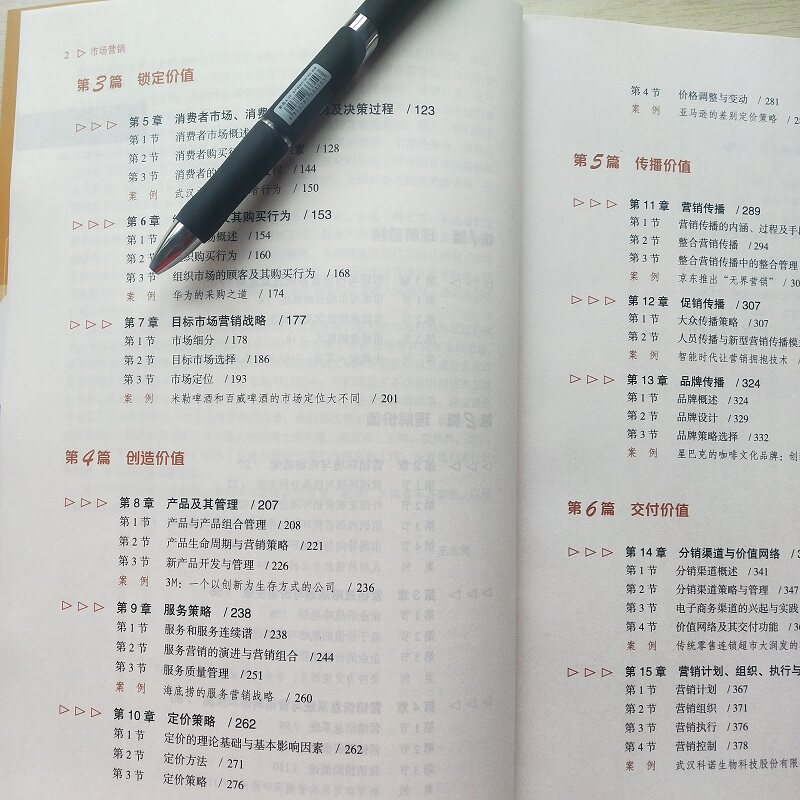 2 ▷ 市场营销
第3篇 锁定价值
▷ ▷ ▷ 第5章 消费者市场、消费 及决策过程 / 123
第1节 消费者市场概述
第2节 消费者购买行 素 / 128
第3节 消费者的 / 144
案 例 武汉 者行为 / 150
▷ ▷ ▷ 第6章 及其购买行为 / 153
第1节 场概述 / 154
第2节 织购买行为 / 160
第3节 组织市场的顾客及其购买行为 / 168
案 例 华为的采购之道 / 174
▷ ▷ ▷ 第7章 目标市场营销战略 / 177
第1节 市场细分 / 178
第2节 目标市场选择 / 186
第3节 市场定位 / 193
案 例 米勒啤酒和百威啤酒的市场定位大不同 / 201
第4篇 创造价值
▷ ▷ ▷ 第8章 产品及其管理 / 207
第1节 产品与产品组合管理 / 208
第2节 产品生命周期与营销策略 / 221
第3节 新产品开发与管理 / 226
案 例 3M：一个以创新为生存方式的公司 / 236
▷ ▷ ▷ 第9章 服务策略 / 238
第1节 服务和服务连续谱 / 238
第2节 服务营销的演进与营销组合 / 244
第3节 服务质量管理 / 251
案 例 海底捞的服务营销战略 / 260
▷ ▷ ▷ 第10章 定价策略 / 262
第1节 定价的理论基础与基本影响因素 / 262
第2节 定价方法 / 271
第3节 定价策略 / 276
第4节 价格调整与变动 / 281
案 例 亚马逊的差别定价策略
第5篇 传播价值
▷ ▷ ▷ 第11章 营销传播 / 289
第1节 营销传播的内涵、过程及手
第2节 整合营销传播 / 294
第3节 整合营销传播中的整合管理
案 例 京东推出“无界营销”
▷ ▷ ▷ 第12章 促销传播 / 307
第1节 大众传播策略 / 307
第2节 人员传播与新型营销传播模
案 例 智能时代让营销拥抱技术 /
▷ ▷ ▷ 第13章 品牌传播 / 324
第1节 品牌概述 / 324
第2节 品牌设计 / 329
第3节 品牌策略选择 / 332
案 例 星巴克的咖啡文化品牌：创
第6篇 交付价值
▷ ▷ ▷ 第14章 分销渠道与价值网络 /
第1节 分销渠道概述 / 341
第2节 分销渠道策略与管理 / 347
第3节 电子商务渠道的兴起与实践
第4节 价值网络及其交付功能 /
案 例 传统零售连锁超市大润发的
▷ ▷ ▷ 第15章 营销计划、组织、执行与
第1节 营销计划 / 367
第2节 营销组织 / 371
第3节 营销执行 / 376
第4节 营销控制 / 378
案 例 武汉科诺生物科技股份有限